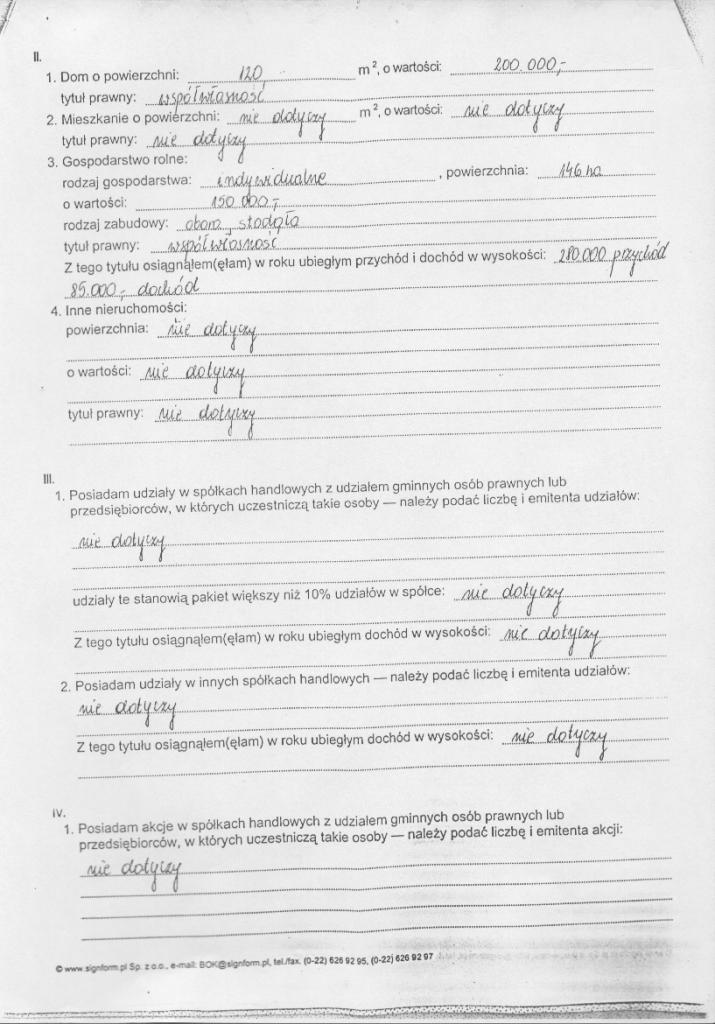 II.
1. Dom o powierzchni: 120 m², o wartości: 200.000,-
tytuł prawny: współwłasność
2. Mieszkanie o powierzchni: nie dotyczy m², o wartości: nie dotyczy
tytuł prawny: nie dotyczy
3. Gospodarstwo rolne:
rodzaj gospodarstwa: indywidualne, powierzchnia: 146 ha
o wartości: 150 000,-
rodzaj zabudowy: obora, stodoła
tytuł prawny: współwłasność
Z tego tytułu osiągnąłem(ęłam) w roku ubiegłym przychód i dochód w wysokości: 280.000 przychód
85.000,- dochód
4. Inne nieruchomości:
powierzchnia: nie dotyczy
o wartości: nie dotyczy
tytuł prawny: nie dotyczy
III.
1. Posiadam udziały w spółkach handlowych z udziałem gminnych osób prawnych lub
przedsiębiorców, w których uczestniczą takie osoby — należy podać liczbę i emitenta udziałów:
nie dotyczy
udziały te stanowią pakiet większy niż 10% udziałów w spółce: nie dotyczy
Z tego tytułu osiągnąłem(ęłam) w roku ubiegłym dochód w wysokości: nie dotyczy
2. Posiadam udziały w innych spółkach handlowych — należy podać liczbę i emitenta udziałów:
nie dotyczy
Z tego tytułu osiągnąłem(ęłam) w roku ubiegłym dochód w wysokości: nie dotyczy
IV.
1. Posiadam akcje w spółkach handlowych z udziałem gminnych osób prawnych lub
przedsiębiorców, w których uczestniczą takie osoby — należy podać liczbę i emitenta akcji:
nie dotyczy
© www.signform.pl Sp. z o.o., e-mail: BOK@signform.pl, tel./fax. (0-22) 626 92 95, (0-22) 626 92 97